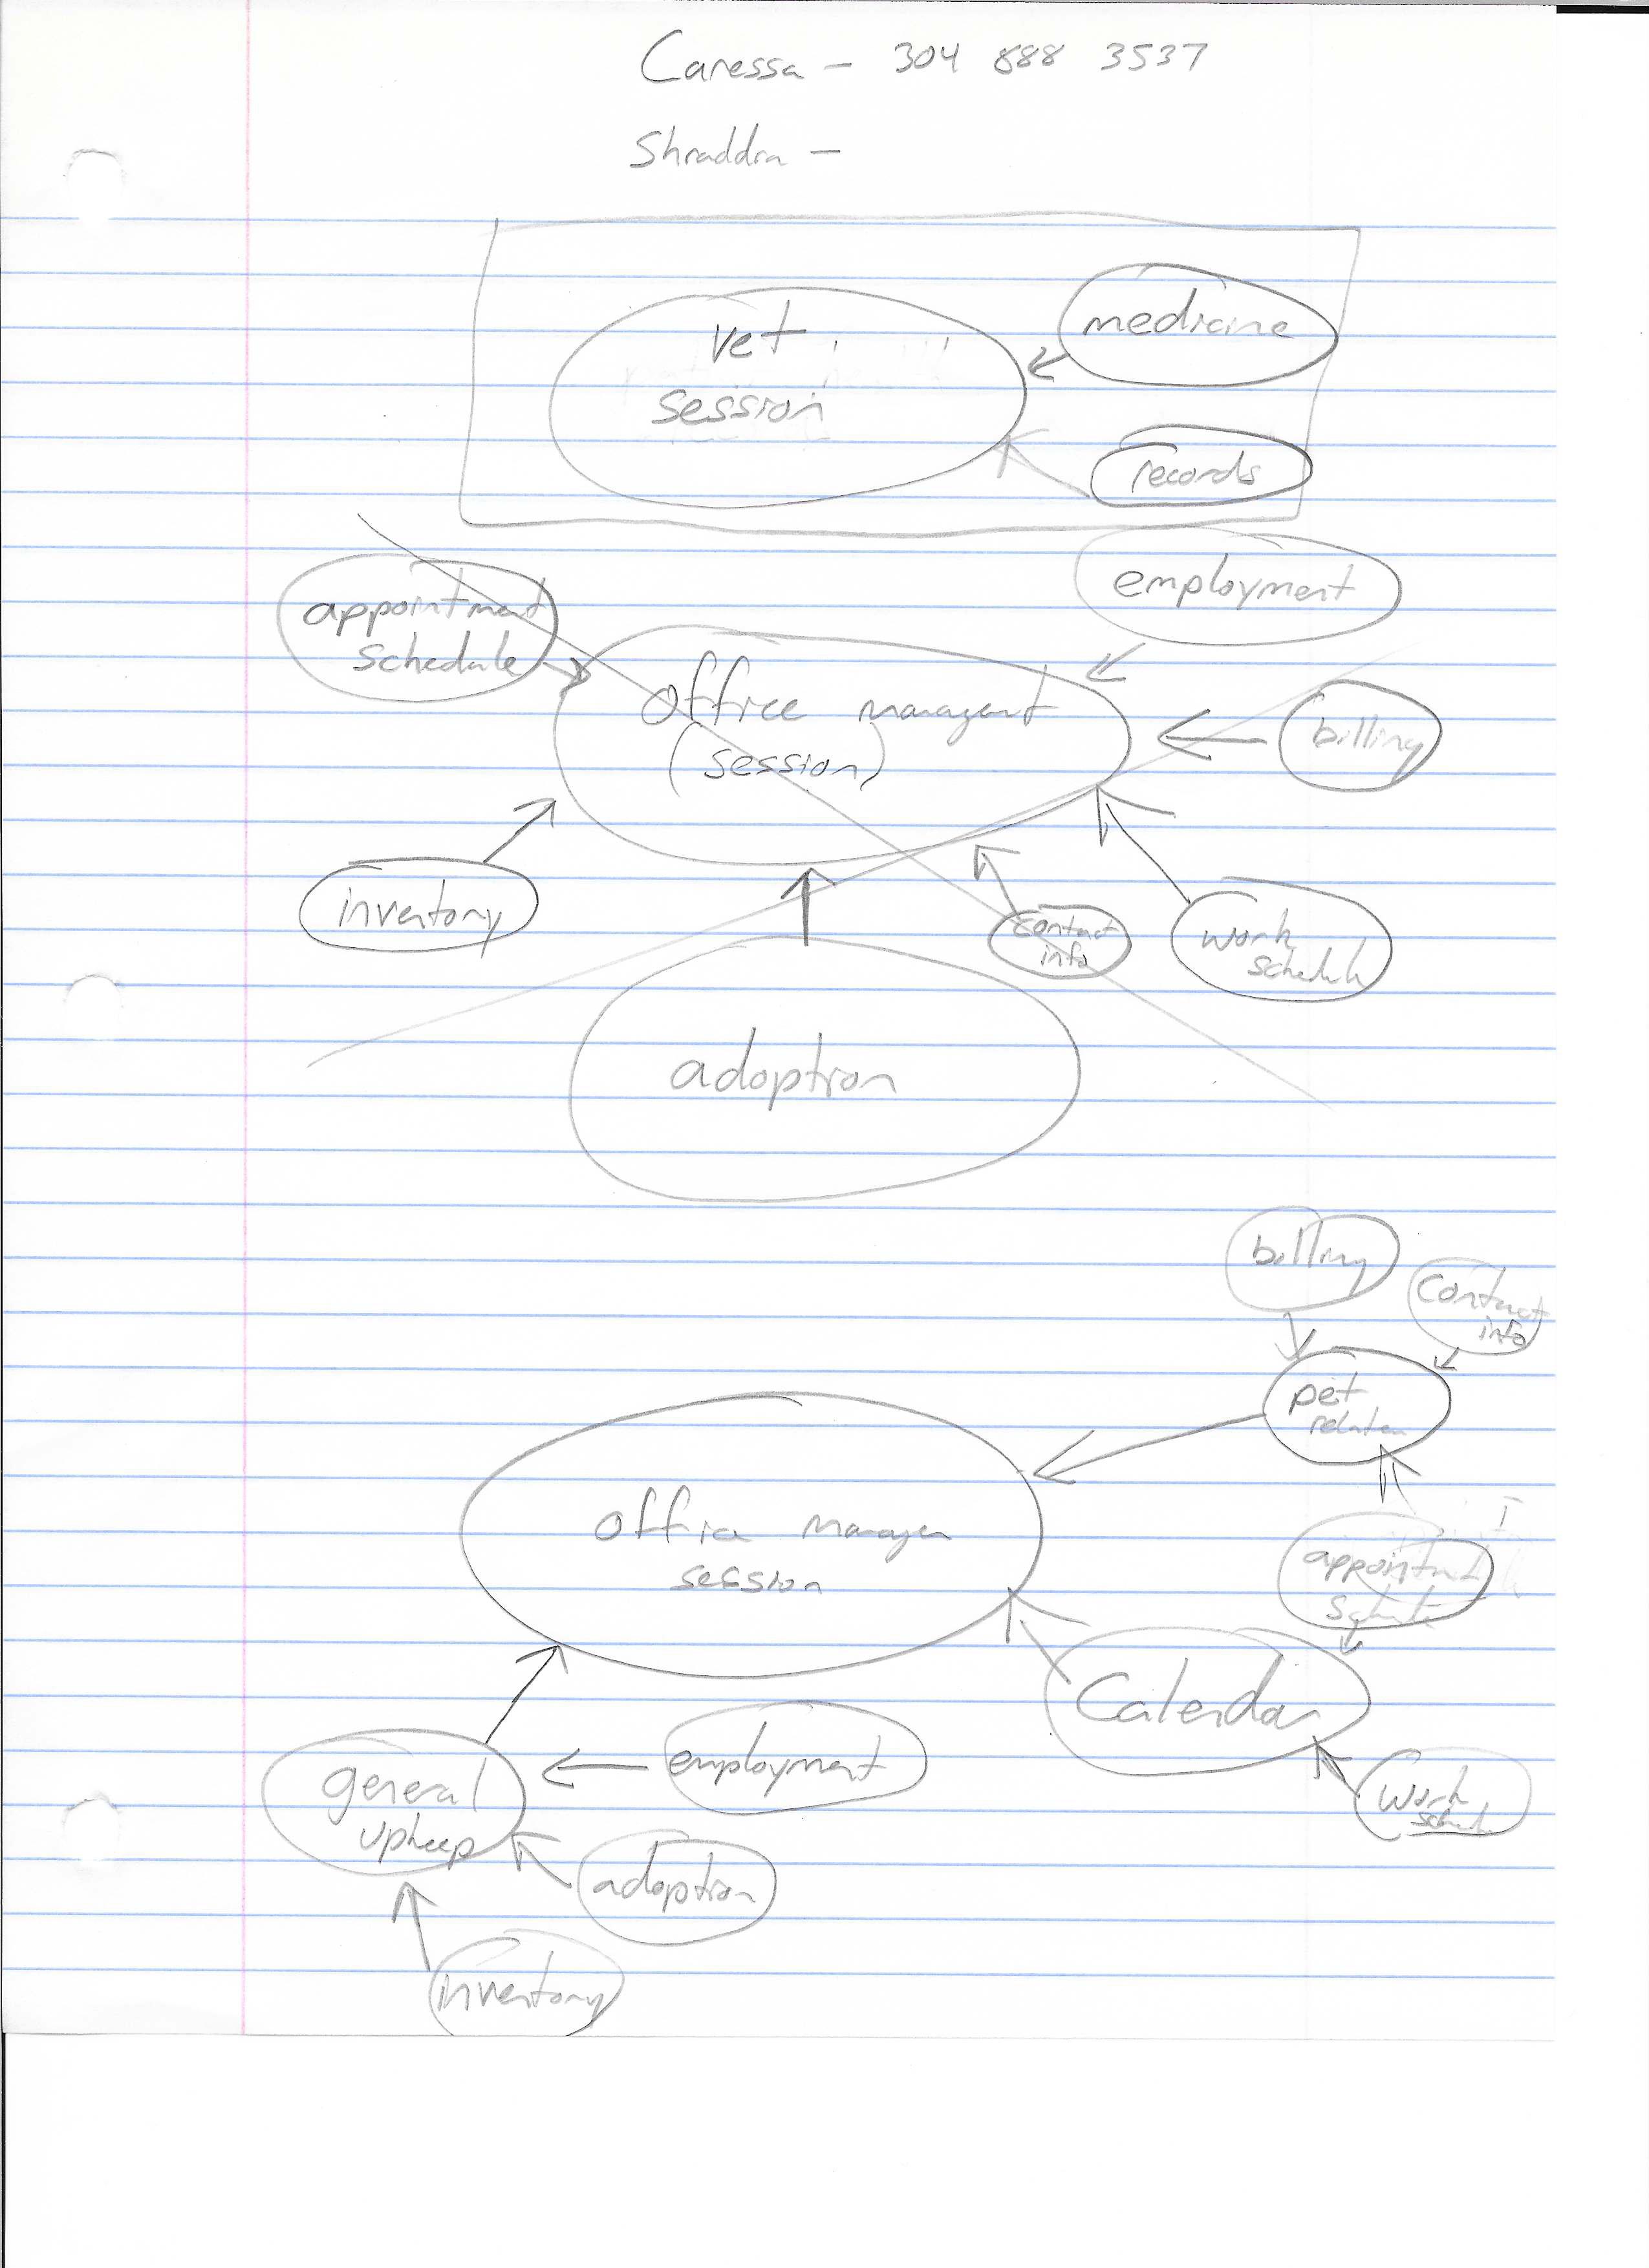 Caressa - 304 888 3537
Shraddra -
vet
session
medicine
records
employment
appointment
schedule
office managent
(session)
billing
inventory
contact
info
work
schedule
adoption
billing
contact
info
pet
office manager
session
Calendar
employment
general
upkeep
work
adoption
inventory